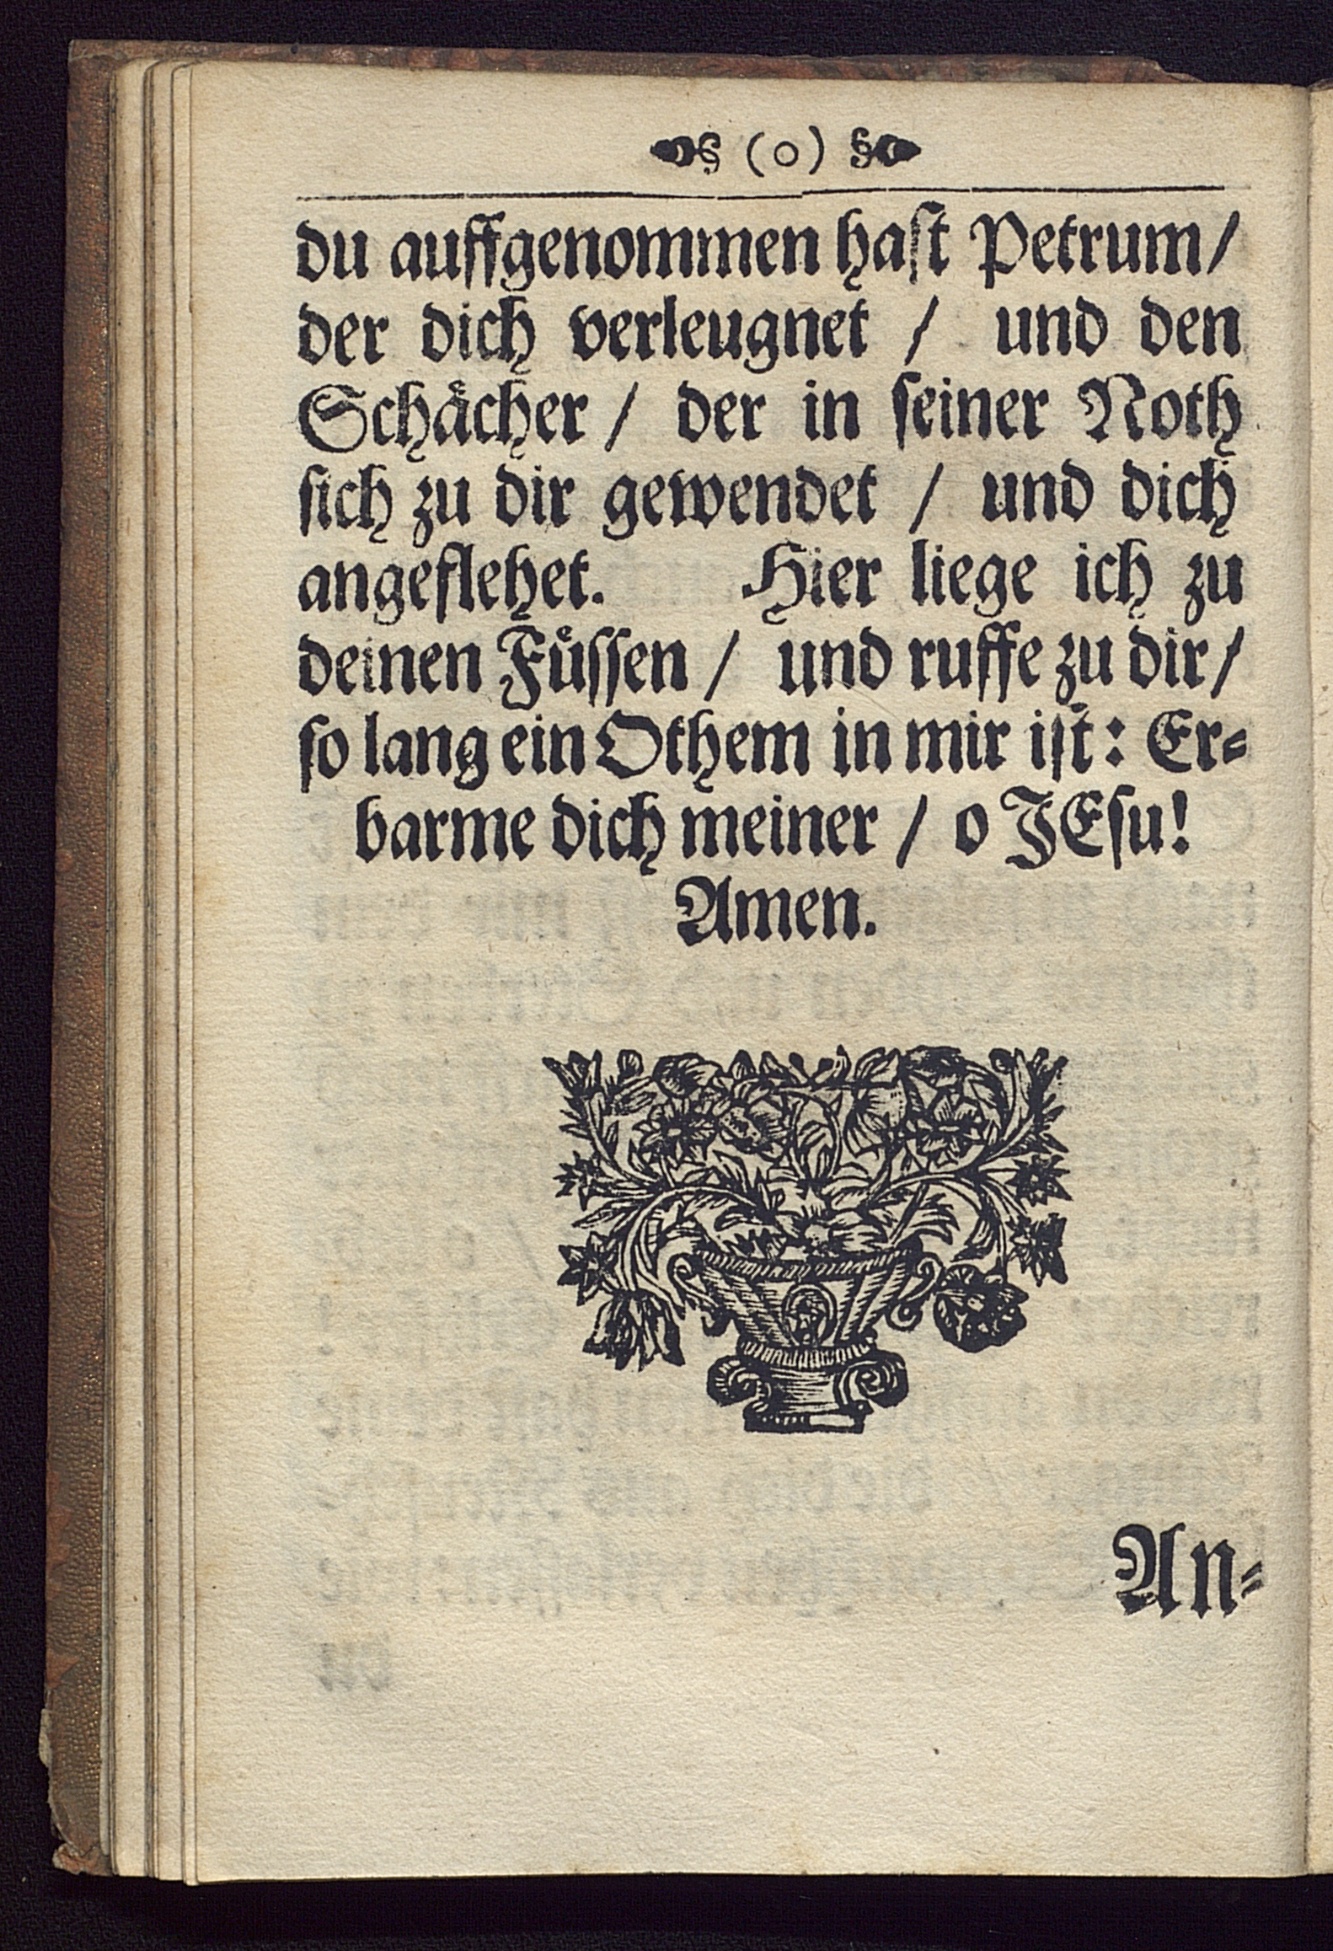 § (o) §
du auffgenommen haſt Petrum/
der dich verleugnet / und den
Schaͤcher / der in ſeiner Noth
ſich zu dir gewendet / und dich
angeflehet. Hier liege ich zu
deinen Fuͤſſen / und ruffe zu dir/
ſo lang ein Othem in mir iſt: Er⸗
barme dich meiner / o JEſu!
Amen.
An⸗